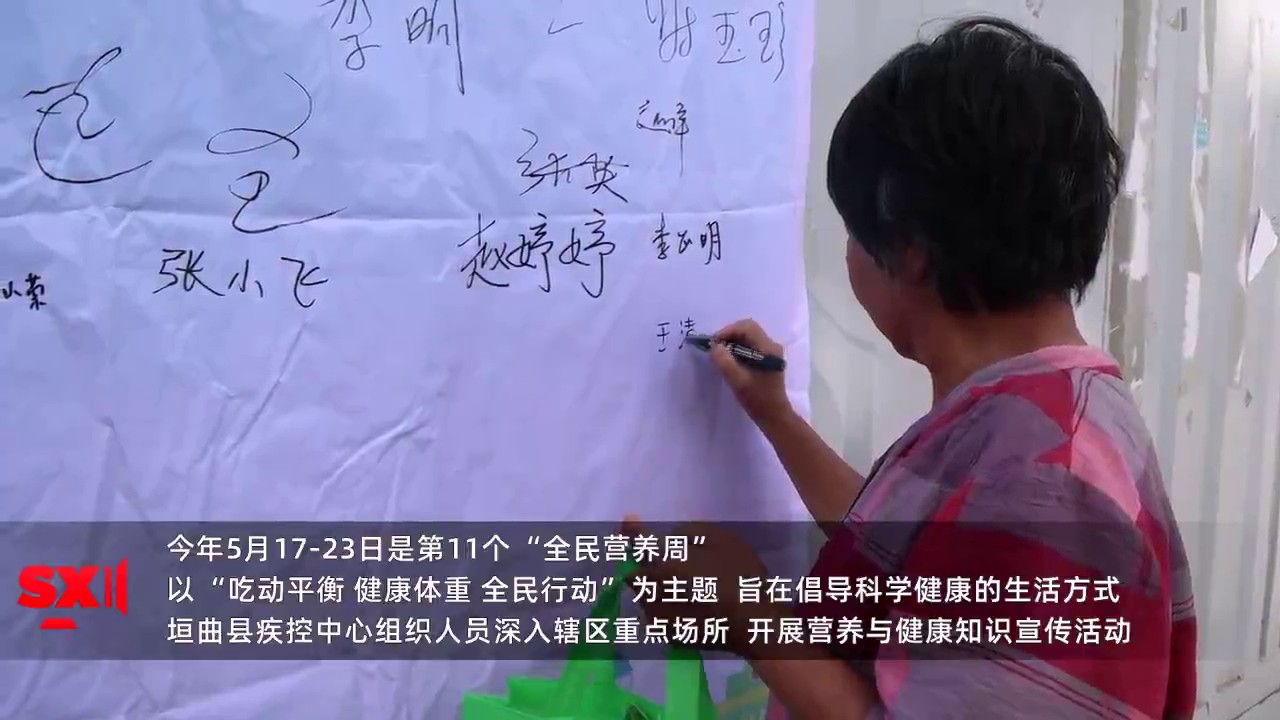 李明
张英
赵婷婷
李正明
张小飞
王清
SX
今年5月17-23日是第11个“全民营养周”
以“吃动平衡 健康体重 全民行动”为主题 旨在倡导科学健康的生活方式
垣曲县疾控中心组织人员深入辖区重点场所 开展营养与健康知识宣传活动